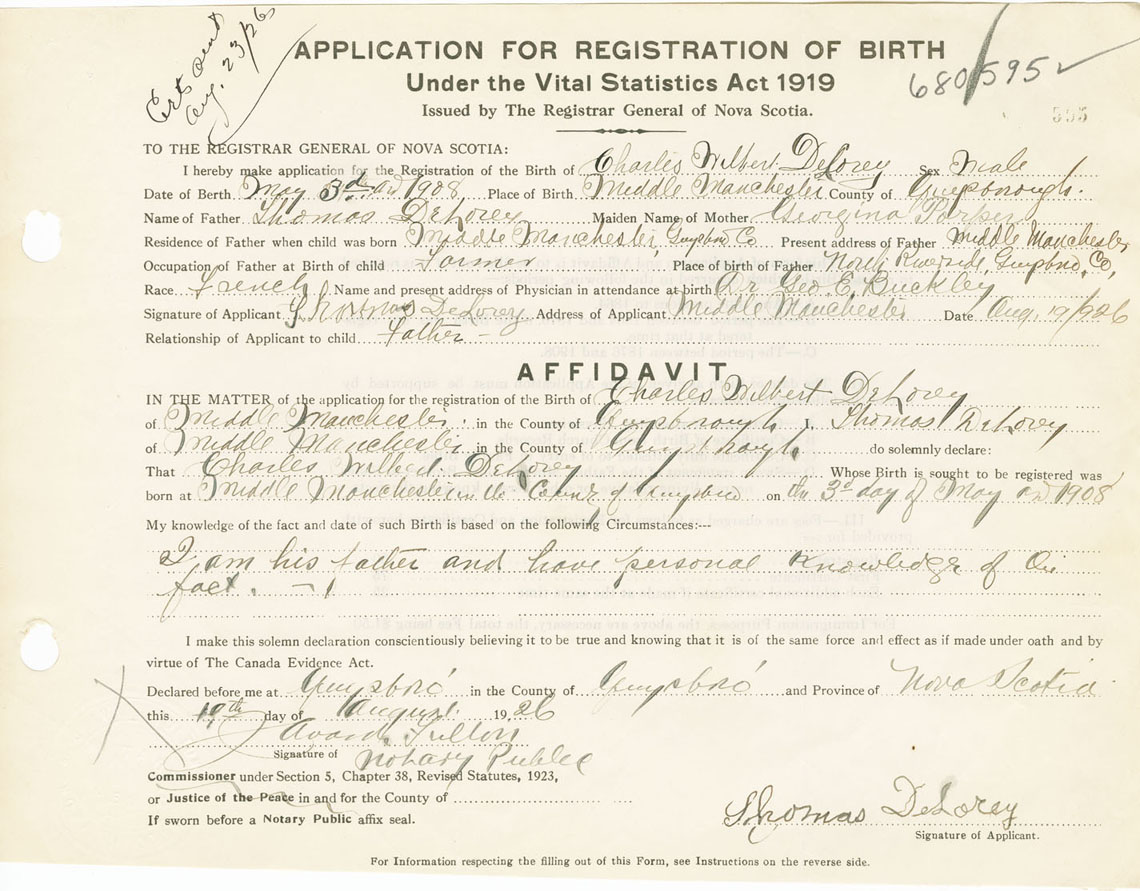 Cert sent
Aug. 23/26
APPLICATION FOR REGISTRATION OF BIRTH
Under the Vital Statistics Act 1919
Issued by The Registrar General of Nova Scotia.
680/595 ✓
595
TO THE REGISTRAR GENERAL OF NOVA SCOTIA:
I hereby make application for the Registration of the Birth of Charles Wilbert DeLorey Sex Male
Date of Berth May 3rd AD 1908 Place of Birth Middle Manchester County of Guysborough.
Name of Father Thomas DeLorey Maiden Name of Mother Georgina Parker
Residence of Father when child was born Middle Manchester, Guysboro Co Present address of Father Middle Manchester
Occupation of Father at Birth of child Farmer Place of birth of Father North Riverside, Guysboro, Co,
Race French Name and present address of Physician in attendance at birth Dr Geo E. Buckley
Signature of Applicant Thomas DeLorey Address of Applicant Middle Manchester Date Aug, 19/1926
Relationship of Applicant to child Father -
AFFIDAVIT
IN THE MATTER of the application for the registration of the Birth of Charles Wilbert DeLorey
of Middle Manchester in the County of Guysborough I, Thomas DeLorey
of Middle Manchester in the County of Guysborough do solemnly declare:
That Charles Wilbert DeLorey Whose Birth is sought to be registered was
born at Middle Manchester in the County of Guysboro on the 3rd day of May AD 1908
My knowledge of the fact and date of such Birth is based on the following Circumstances:---
I am his father and have personal knowledge of the
fact. -
I make this solemn declaration conscientiously believing it to be true and knowing that it is of the same force and effect as if made under oath and by
virtue of The Canada Evidence Act.
Declared before me at Guysboro in the County of Guysboro and Province of Nova Scotia
this 19th day of August 1926
Fulton
Signature of Notary Public
Commissioner under Section 5, Chapter 38, Revised Statutes, 1923,
or Justice of the Peace in and for the County of
If sworn before a Notary Public affix seal.
Thomas DeLorey
Signature of Applicant.
For Information respecting the filling out of this Form, see Instructions on the reverse side.